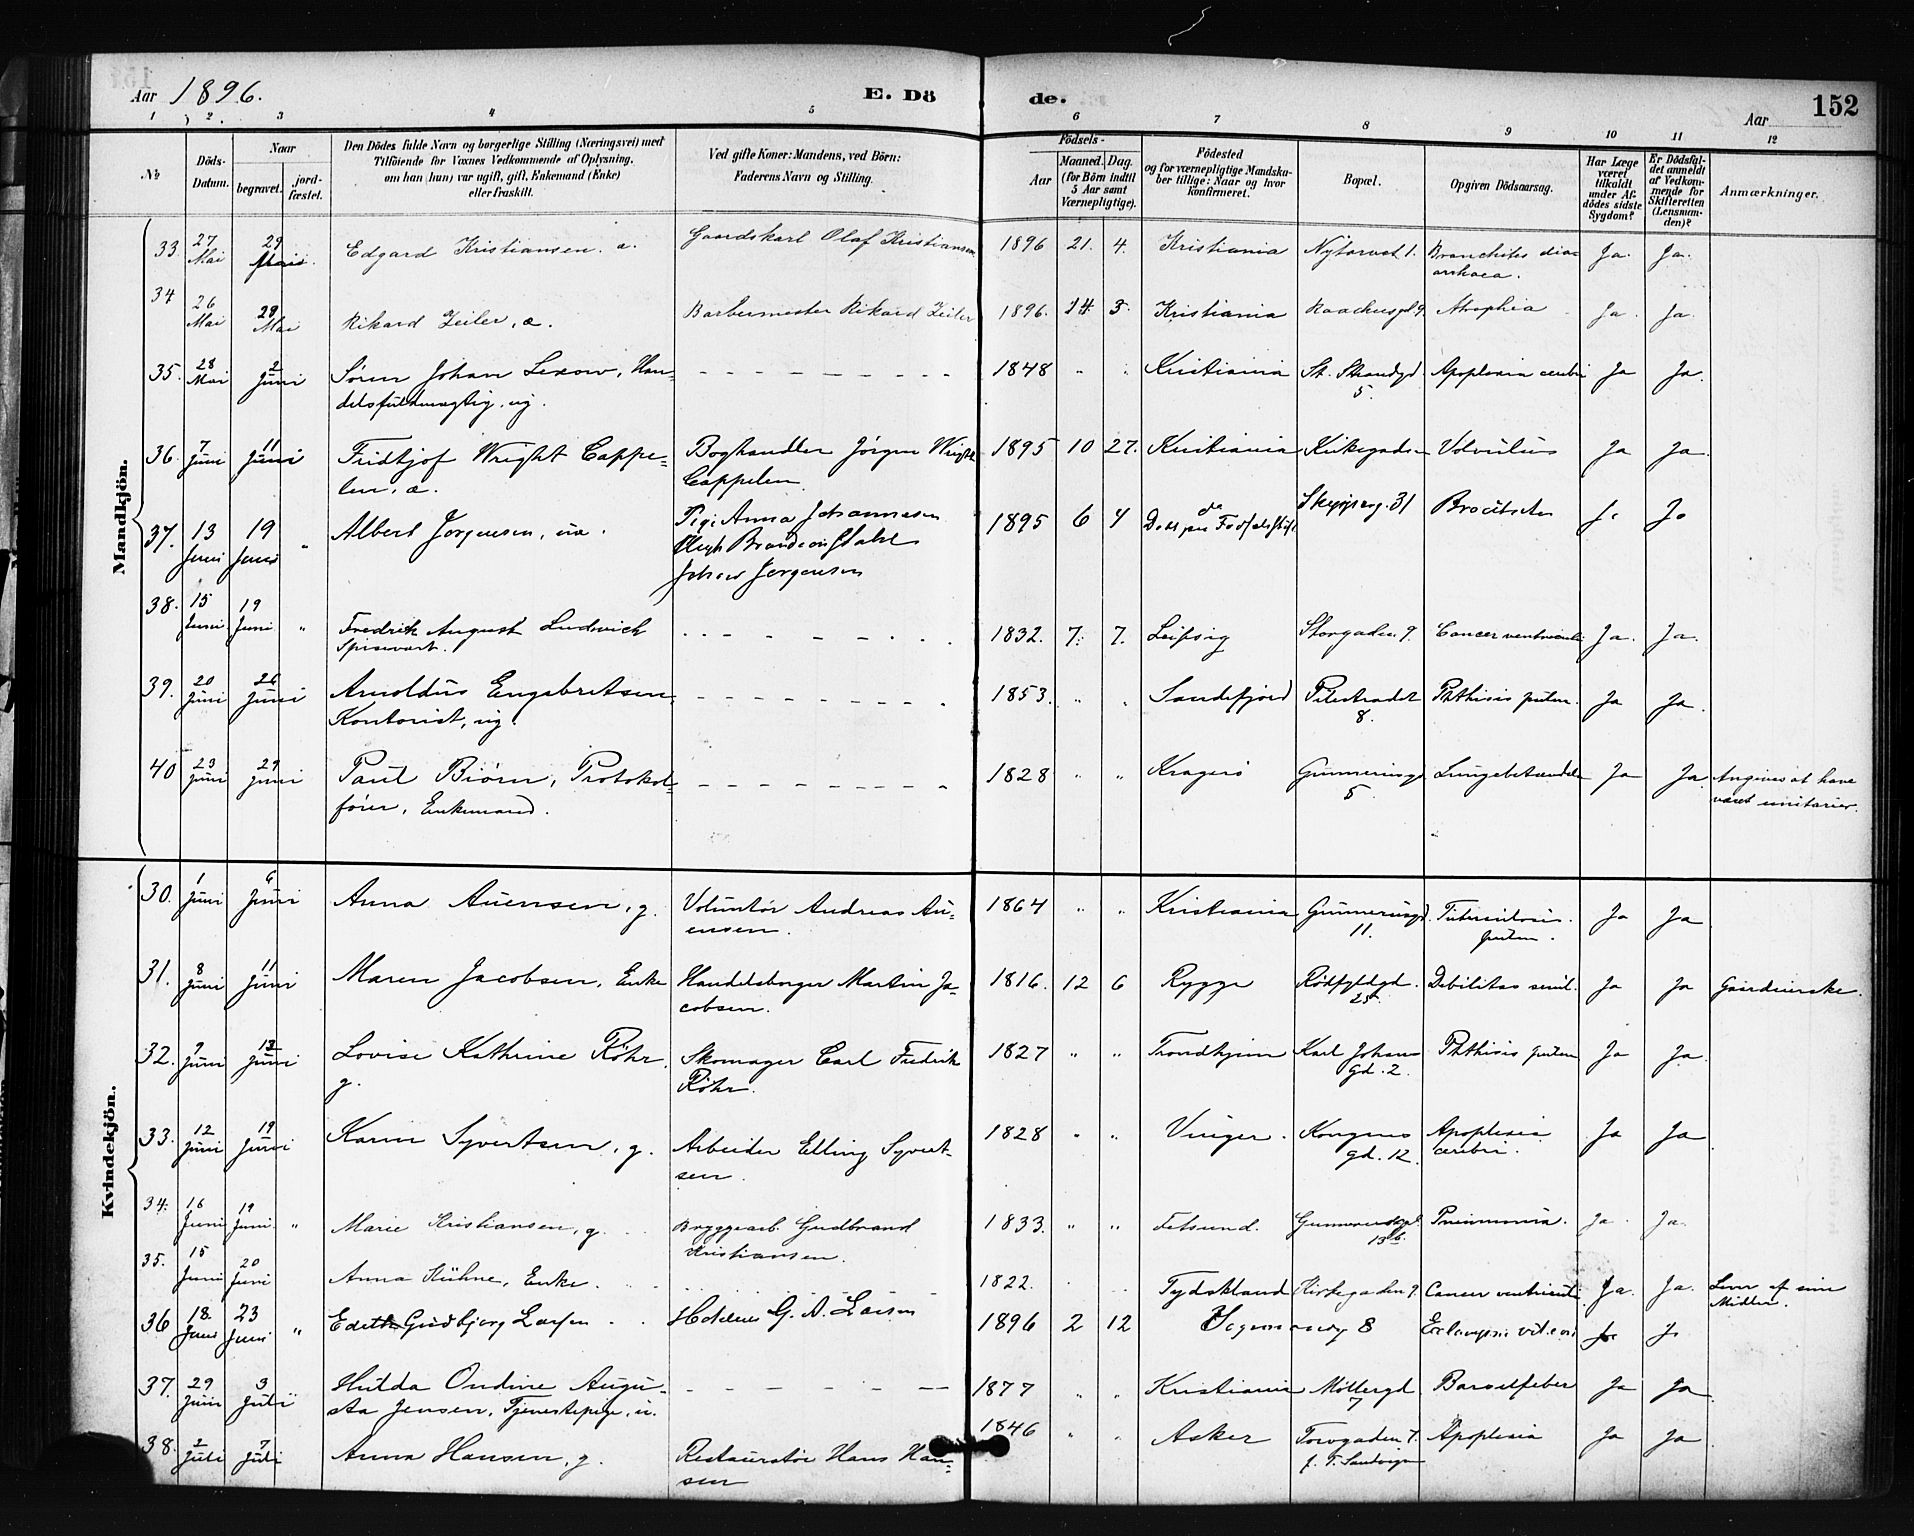 Aar 1896. E. Döde. Aar 152
1 2. 3 4 5 6 7 8 9 10 11 12
No Döds-Datum. Naar begravet. jordfæstet. Den Dödes fulde Navn og borgerlige Stilling (Næringsvei) med Tilföiende for Voxnes Vedkommende af Oplysning, om han (hun) var ugift, gift, Enkemand (Enke) eller fraskilt. Ved gifte Koner: Mandens, ved Börn: Faderens Navn og Stilling. Födsels- Aar Maaned. Dag. (for Börn indtil 5 Aar samt Værnepligtige). Födested og for værnepligtige Mandskaber tillige: Naar og hvor konfirmeret. Bopæl. Opgiven Dödsaarsag. Har Læge været tilkaldt under Afdödes sidste Sygdom? Er Dödsfaldet anmeldt af Vedkommende for Skifteretten (Lensmanden)? Anmærkninger.
Mandkjön.
33. 27 Mai 29 Mai. Edgard Kristiansen. a. Gaardskarl Olaf Kristiansen 1896 21. 4. Kristiania Nytorvet 1. Bronchites diarrhoea. Ja. Ja.
34 26 Mai 29 Mai Rikard Zeiler, a. Barbermester Rikard Zeiler 1896. 14. 3. Kristiania 9. Atrophia Ja. Ja.
35. 28 Mai 2 Juni Sören Johan Lexow, Handelsfuldmægtig, ug. 1848 " " Kristiania St. Strandgd 5. Apoplexia cerebri Ja Ja.
36. 7 Juni 11 Juni Fridtjof Wright Cappelen, a. Boghandler Jörgen Wright Cappelen 1895 10 27. Kristiania Kirkegaden Volvulus Ja Ja
37. 13 Juni 19 Juni " Albert Jorgensen, ua. Pige Anna Johannesen Johan Jorgensen 1895 6 4 Skippergd. 31 Ja Ja
38. 15 Juni 19 Juni " Fredrik August Ludwich Spisevært. 1832. 7. 7. Leipsig Storgaden 9. Cancer ventriculi Ja. Ja.
39. 20 Juni 26 Juni Arnoldus Engebretsen Kontorist, ug. 1853. " " Sandefjord Pilestrædet 8. Phthisis pulm. Ja Ja.
40 23 Juni 29 Juni Paul Biörn, Protokolförer, Enkemand. 1828 " " Kragerö Gunnerusgd 5. Lungebetændelse Ja Ja. Angives at have været unitarier.
Kvindekjön.
30. 1 Juni 6 Juni Anna Auensen, g. Voluntör Andreas Auensen. 1864 " " Kristiania Gunnerusgd. 11. Tuberculosis pulm. Ja Ja
31. 8 Juni 11 Juni Maren Jacobsen, Enke Handelsborger Martin Jacobsen. 1816. 12 6 Rygge Rödfyldgd. 25. Debilitas senil. Ja Ja Gaardeierske.
32. 7 Juni 12 Juni Lovise Kathrine Röhr, g. Skomager Carl Fredrik Röhr. 1827 " " Trondhjem Karl Johans gd. 2. Phthisis pulm Ja Ja.
33. 12 Juni 19 Juni Karen Syvertsen, g. Arbeider Elling Syvertsen. 1828 " " Vinger. Kongens gd. 12. Apoplexia cerebri. Ja Ja
34. 16 Juni 19 Juni " Marie Kristiansen, g. Bryggearb. Gudbrand Kristiansen. 1833. " " Fetsund. 13b. Pneumonia. Ja. Ja.
35. 15 Juni 20 Juni Anna Kühne, Enke. 1822. Tydskland Kirkegaden 9. Cancer ventriculi Ja. Ja. Lever af sine Midler.
36 18. Juni 23 Juni " Edith Gudbjorg Larsen G. A. Larsen 1896 2 12 8 Ja Ja
37. 29 Juni 3 Juli Hulda Ondine Augusta Jensen, Tjenestepige, u. 1877 " " Kristiania Möllergd 7 Barselfeber Ja Ja
38. 2 Juli 7 Juli Anna Hansen, g. Restauratör Hans Hansen 1846 " " Asker Torvgaden 7. Apoplexia Ja Ja